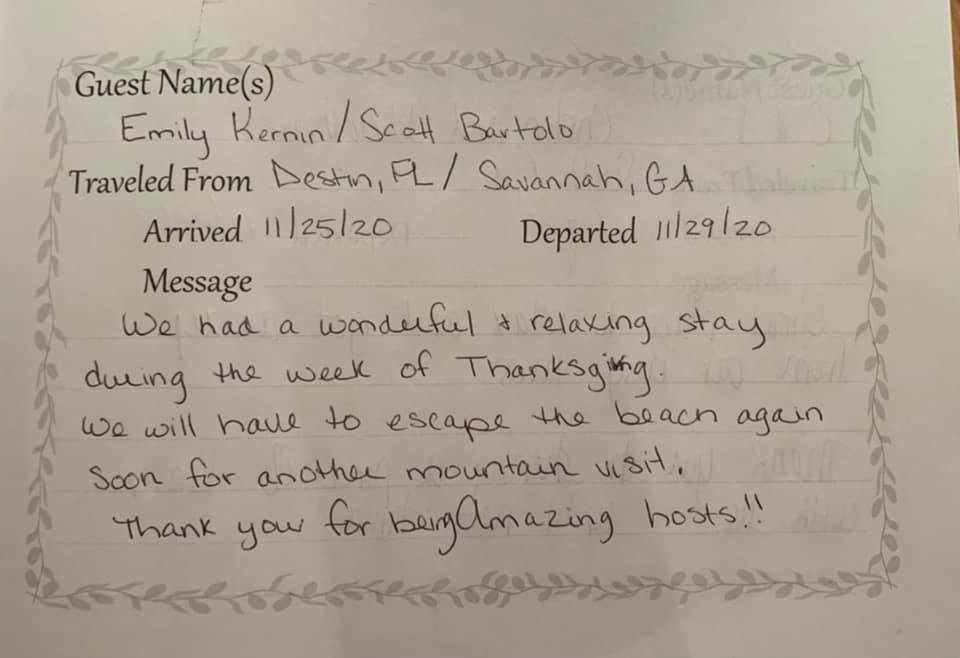 Guest Name(s)
Emily Kernin / Scott Bartolo
Traveled From Destin, FL / Savannah, GA
Arrived 11/25/20 Departed 11/29/20
Message
We had a wonderful & relaxing stay
during the week of Thanksgiving.
We will have to escape the beach again
soon for another mountain visit.
Thank you for being Amazing hosts!!